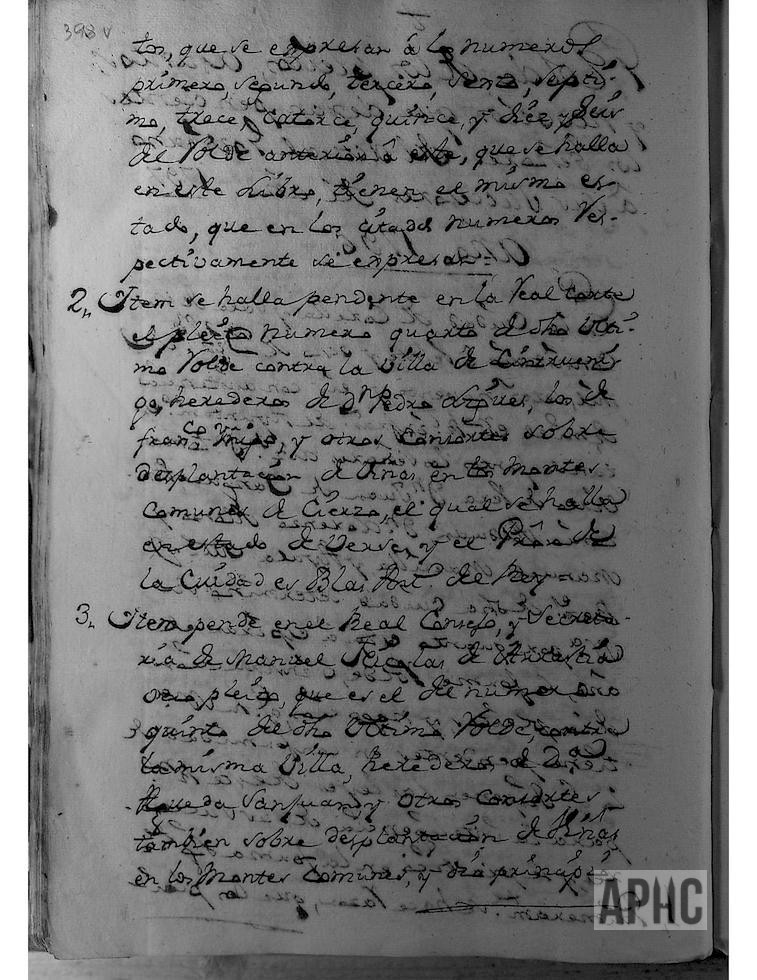 398 v
tos, que se expresan á los numeros
primero, segundo, tercero, sexto, septi-
mo, trece, catorce, quince, y diez y seis
del Volde anterior á este, que se halla
en este Libro, tienen el mismo es-
tado, que en los citados numeros res-
pectivamente se expresan=
2,, Item se halla pendente en la Real Corte
el pleito numero quarto de dho Ulti-
mo Volde contra la Villa de Cintrueni-
go, herederos de Dn Pedro los de
Franco y otros Consortes sobre
desplantacion de Viñas en los Montes
Comunes de Cierzo, el qual se halla
en estado de Verse, y el Prõr de
la Ciudad es Blas Anto. de Rey=
3,, Item pende en el Real Consejo, y Secreta-
ria de Manuel Nicolas de
otro pleito, que es el del numero
quinto de dho Ultimo Volde, contra
la misma Villa, herederos de Da
Agueda Sanjuan y otros Consortes
tambien sobre desplantacion de Viñas
en los Montes Comunes, y dió principio
APHC